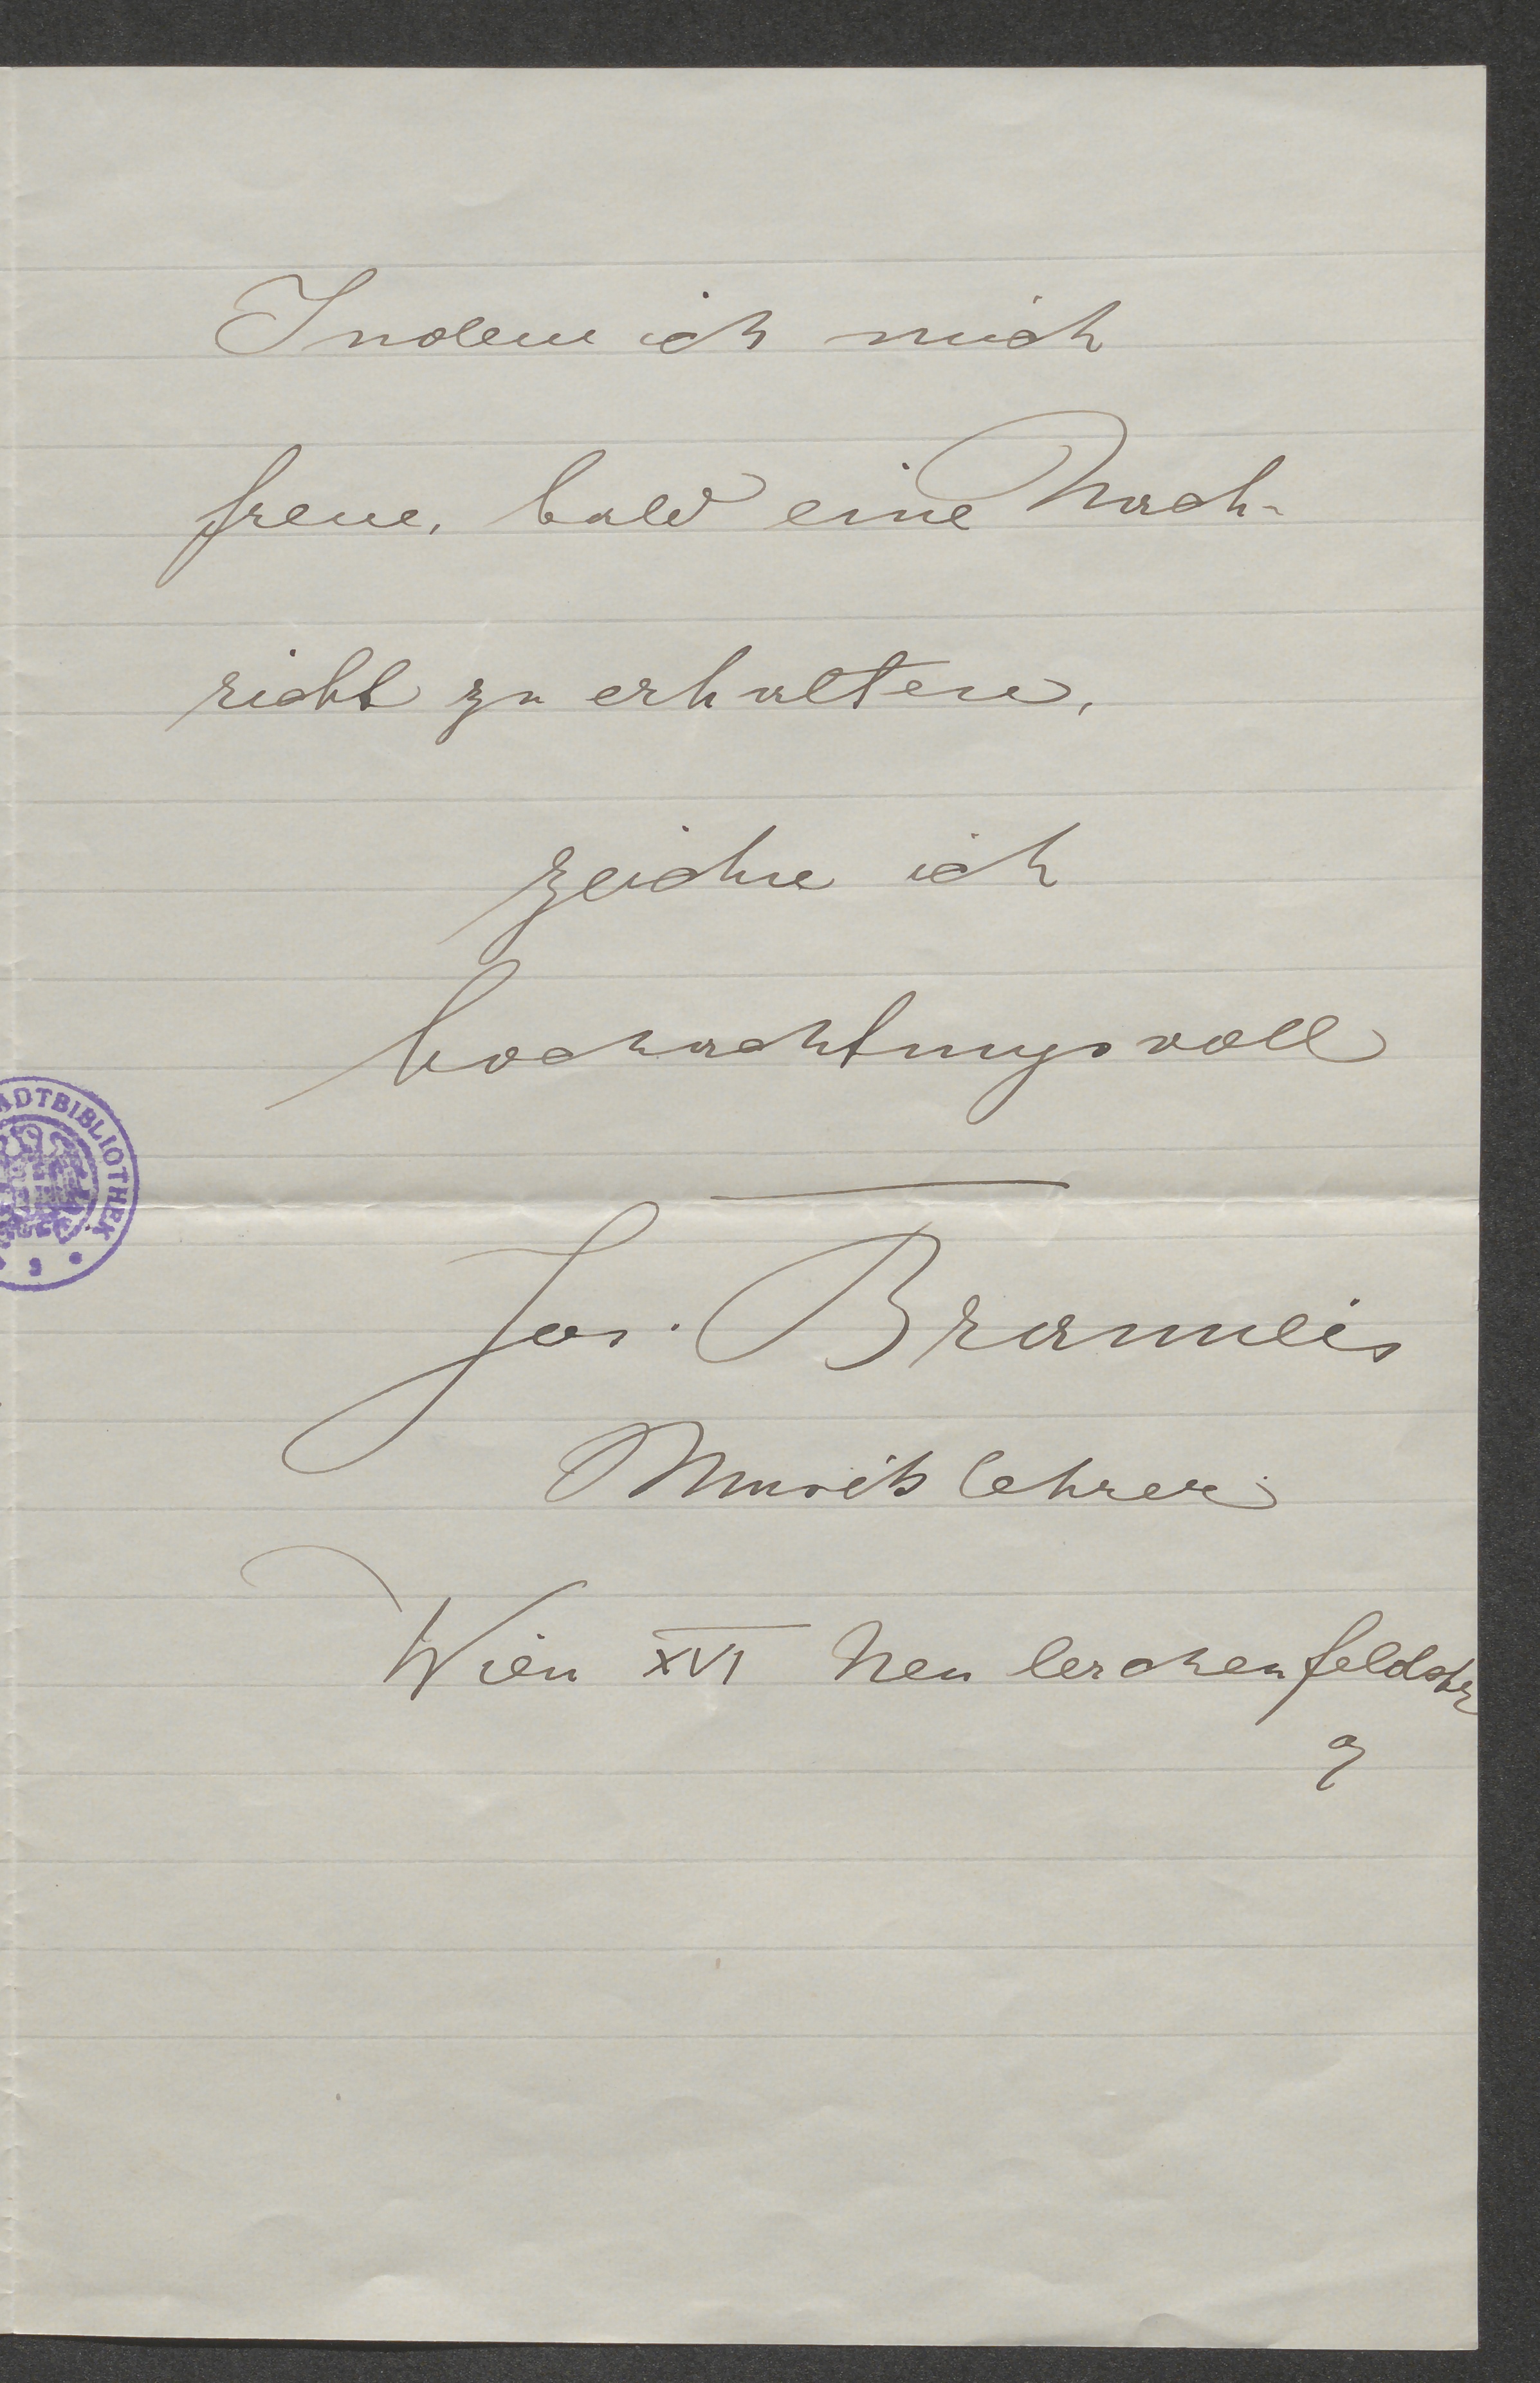 Indem ich mich
freue, bald eine Nach-
richt zu erhalten,
zeichne ich
hochachtungsvoll
Jos. Bramneis
Musiklehrer
Wien XVI Neulerchenfeldstr
9
ADTBIBLIOTHEK